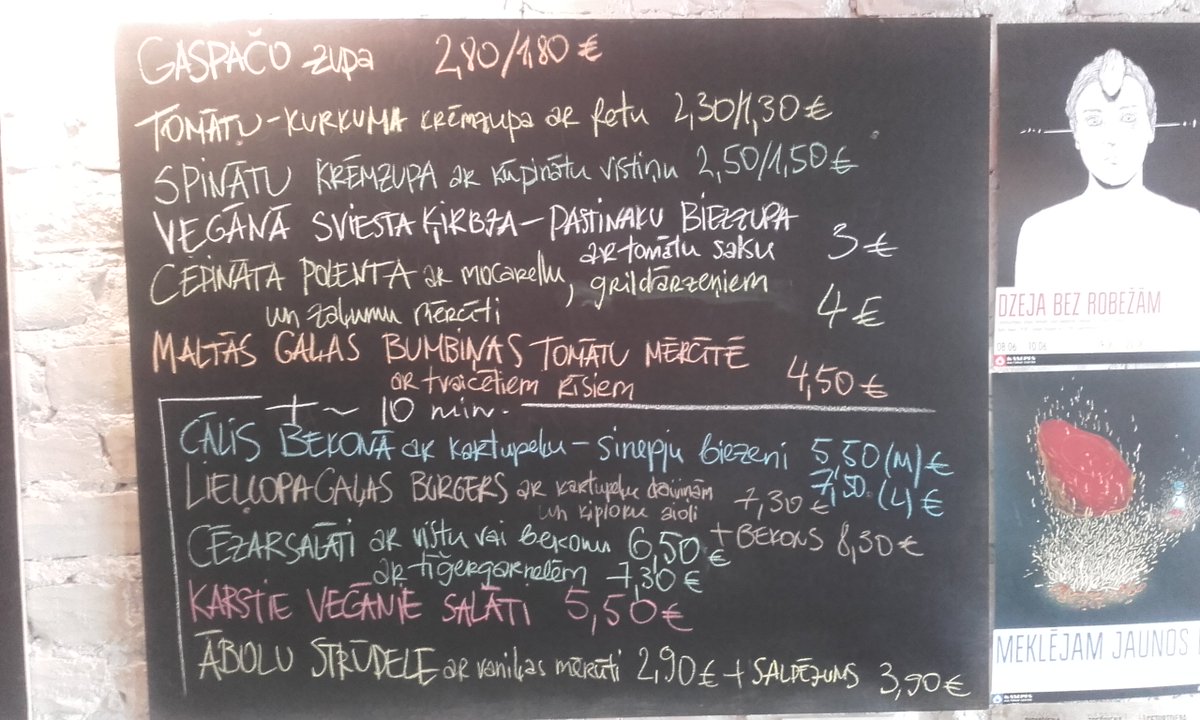 GASPAČO zupa 2,80/1,80 €
TOMĀTU-KURKUMA krēmzupa ar fetu 2,30/1,30 €
SPINĀTU KRĒMZUPA ar kūpinātu vistiņu 2,50/1,50 €
VEGĀNĀ SVIESTA ĶIRBJA-PASTINAKU BIEZZUPA
ar tomātu saku 3 €
CEPINĀTA POLENTA ar mocarellu, grildārzeņiem
un zaļumu mērcīti 4 €
MALTĀS GAĻAS BUMBIŅAS TOMĀTU MĒRCĪTĒ
ar tvaicētiem rīsiem 4,50 €
+ ~ 10 min.
CĀLIS BEKONĀ ar kartupeļu-sinepju biezeni 5,50 (M) €
7,50 (L) €
LIELLOPA GAĻAS BURGERS ar kartupeļu daiviņām
un ķiploku aioli 7,30 €
+ BEKONS 8,30 €
CĒZARSALĀTI ar vistu vai bekonu 6,50 €
ar tīģergarnelēm 7,30 €
KARSTIE VEGĀNIE SALĀTI 5,50 €
ĀBOLU STRŪDELE ar vaniļas mērcīti 2,90 € + SALDĒJUMS 3,90 €
DZEJA BEZ ROBEŽĀM
08.06 10.06
MEKLĒJAM JAUNOS